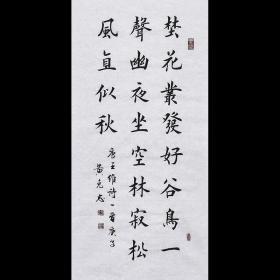 埜花叢發好谷鳥一
聲幽夜坐空林寂松
風直似秋
唐王維詩一首庚子
黃克志